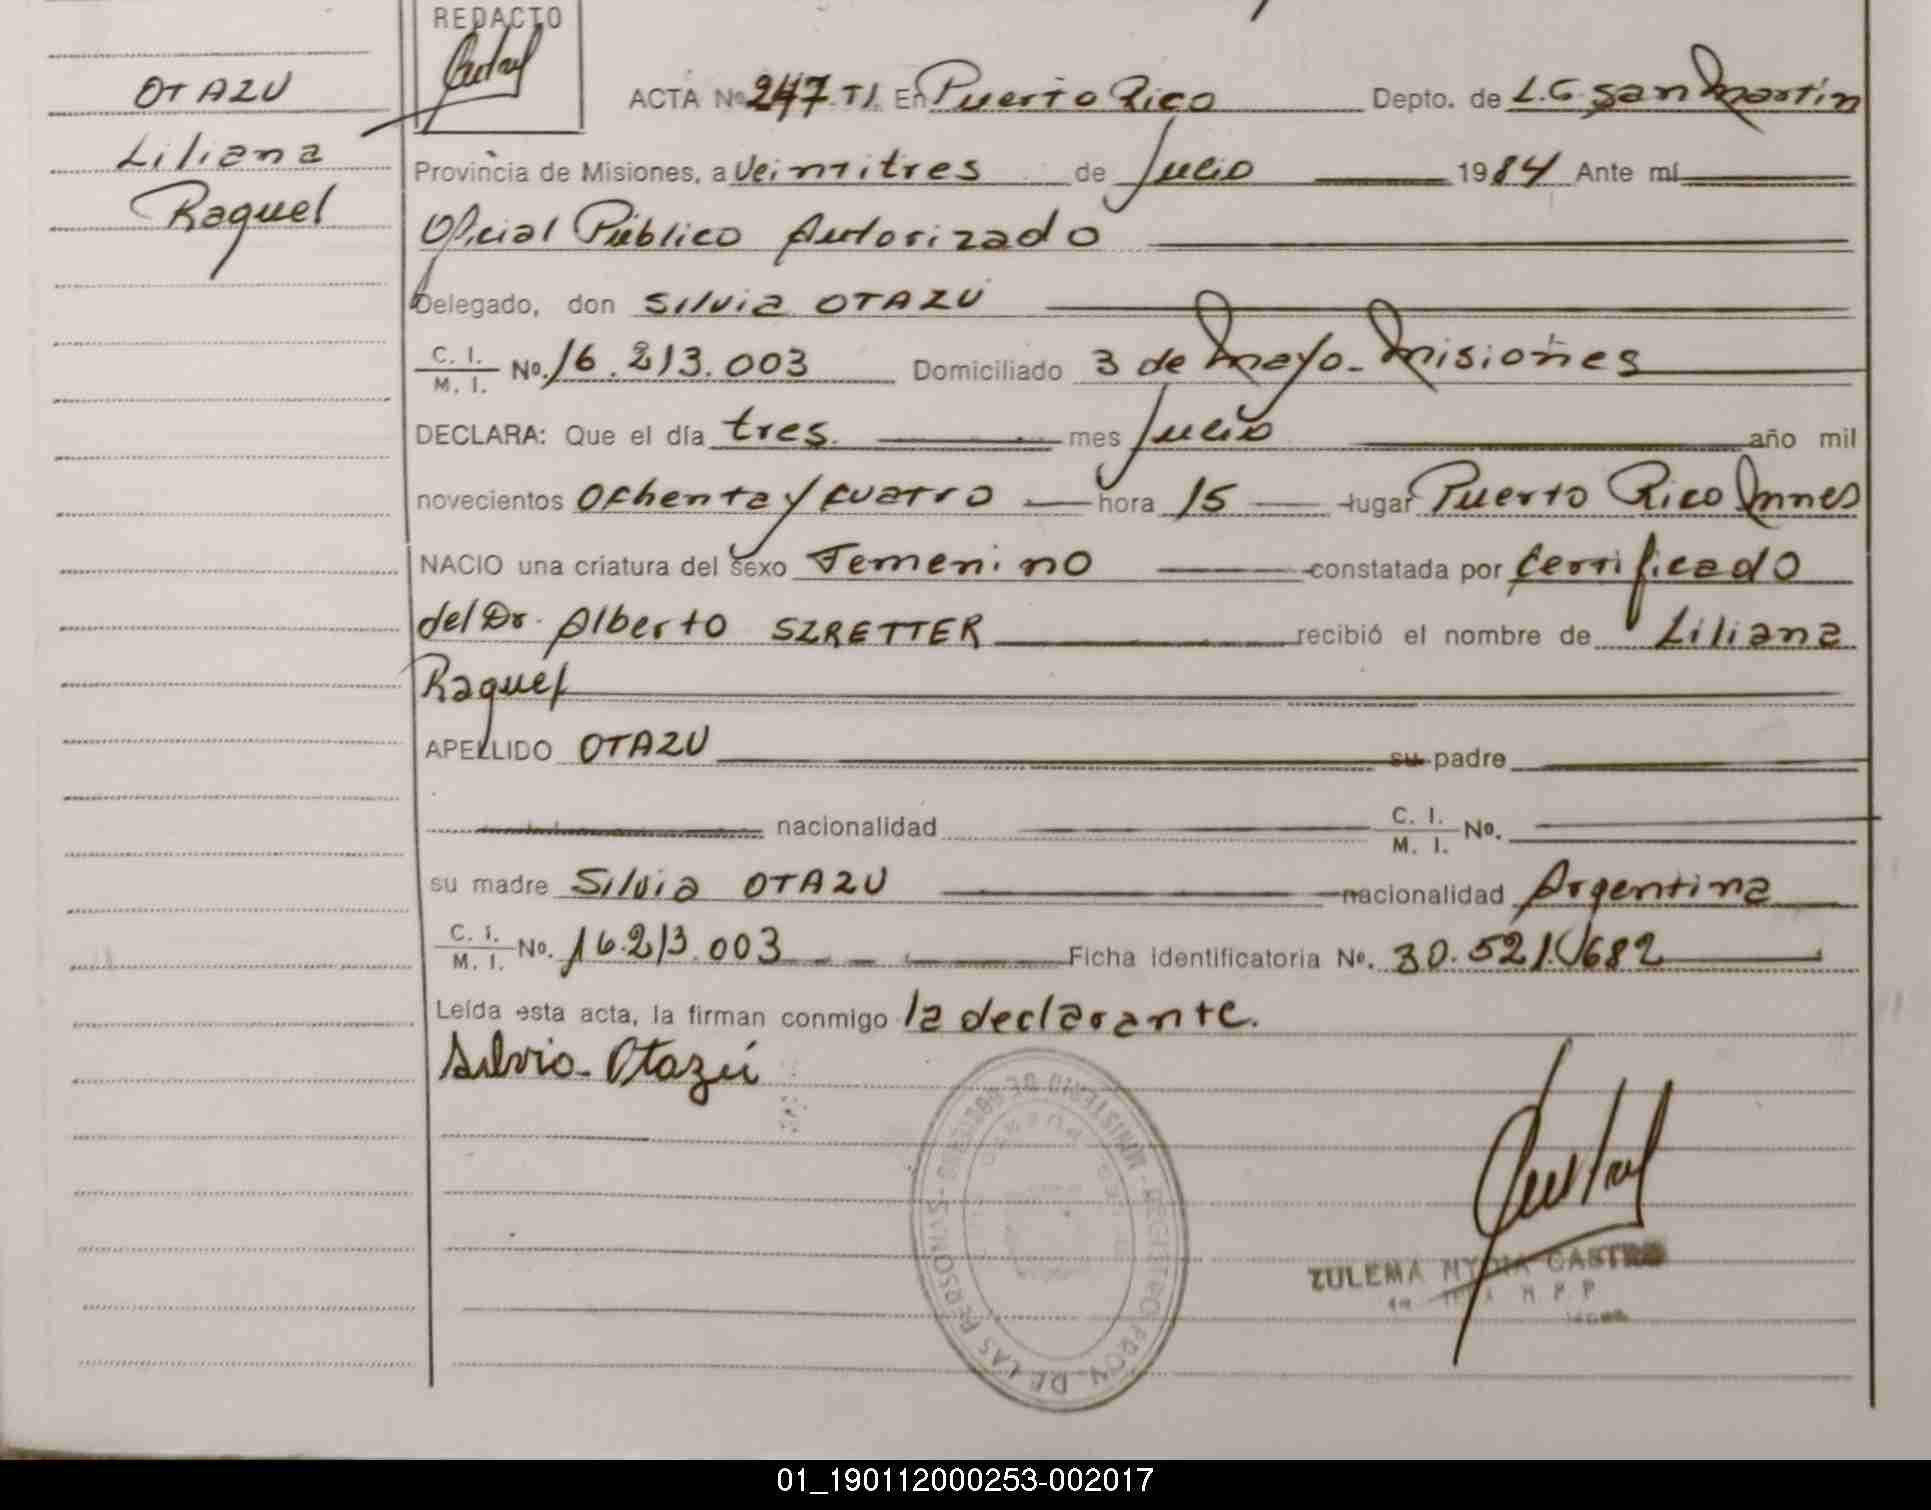 REDACTO
OTAZU
Liliana
Raquel
ACTA Nº 247. TI. En Puerto Rico Depto. de L.G. San Martín
Provincia de Misiones, a Veintitres de Julio 1984 Ante mí
Oficial Público Autorizado
Delegado, don Silvia OTAZU
C. I. / M. I. Nº. 16.213.003 Domiciliado 3 de Mayo - Misiones
DECLARA: Que el día tres. mes Julio año mil
novecientos Ochenta y cuatro hora 15 lugar Puerto Rico Mnes
NACIO una criatura del sexo Femenino constatada por Certificado
del Dr. Alberto SZRETTER recibió el nombre de Liliana
Raquel
APELLIDO OTAZU su padre
nacionalidad C. I. / M. I. Nº.
su madre Silvia OTAZU nacionalidad Argentina
C. I. / M. I. Nº. 16.213.003 Ficha identificatoria Nº. 30.521.682
Leída esta acta, la firman conmigo la declarante.
Silvia Otazú
MINISTERIO DE GOBIERNO - REGISTRO PROV. DE LAS PERSONAS
ZULEMA NYDIA CASTRO
01_190112000253-002017